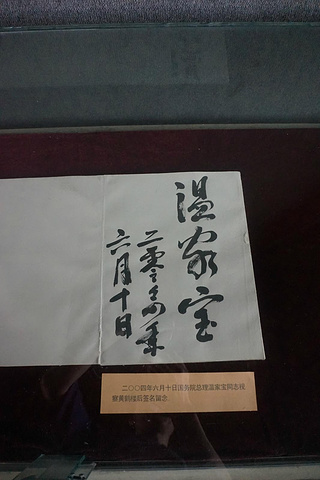 温家宝
二零零四年
六月十日
二〇〇四年六月十日国务院总理温家宝同志视
察黄鹤楼后签名留念